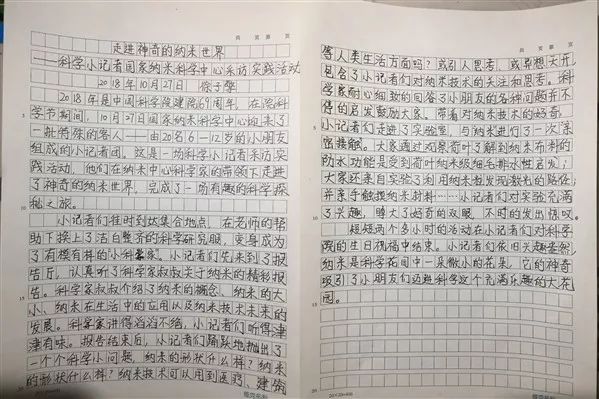 共 页 第 页
走进神奇的纳米世界
——科学小记者国家纳米科学中心采访实践活动
2018年10月27日 徐子擎
2018年是中国科学院建院69周年,在混科
学节期间,10月27日国家纳米科学中心迎来了
一批特殊的客人——由20名6—12岁的小朋友
组成的小记者团。这是一场科学小记者采访实
践活动,他们在纳米中心科学家的带领下走进
了神奇的纳米世界,完成了一场有趣的科学探
秘之旅。
小记者们准时到达集合地点,在老师的帮
助下换上了洁白整齐的科学研究服,变身成为
了有模有样的小科家。小记者们先来到了报
告厅,认真听了科学家叔叔关于纳米的精彩报
告。科学家叔叔介绍了纳米的概念、纳米的大
小、纳米在生活中的应用以及纳米技术未来的
发展。科学家讲得滔滔不绝,小记者们听得津
津有味。报告结束后,小记者们踊跃地抛出了
一个个科学小问题,纳米的形状什么样?纳米
的形状什么样?纳米技术可以用到医疗、建筑
5
10
15
20
共 页 第 页
等人类生活方面吗?或引人思考,或异想天开,
包含了小记者们对纳米技术的关注和思考。科
学家耐心细致的回答了小朋友的各种问题并不
停的启发鼓励大家。带着对纳米技术的好奇,
小记者们走进了实验室,与纳米进行了一次亲
密接触。大家通过观察荷叶了解到纳米布料的
防水功能是受到荷叶纳米级细毛排水性启发;
大家还亲自实验了利用纳米粒发现激光的路径,
并亲手触摸纳米封料……小记者们对实验充满
了兴趣,睁大了好奇的双眼,不时的发出惊叹。
短短两个多小时的活动在小记者们对科学
院的生日祝福中结束。小记者们依旧兴趣盎然,
纳米是科学花园中一朵微小的花朵,它的神奇
吸引了小朋友们迈进科学这个充满乐趣的大花
园。
5
10
15
20